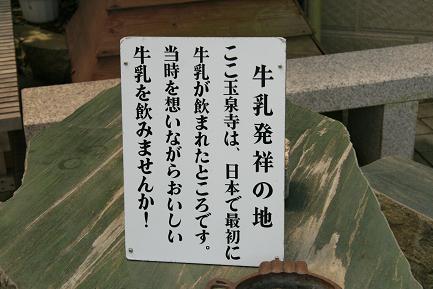 牛乳発祥の地
ここ玉泉寺は、日本で最初に
牛乳が飲まれたところです。
当時を想いながらおいしい
牛乳を飲みませんか！